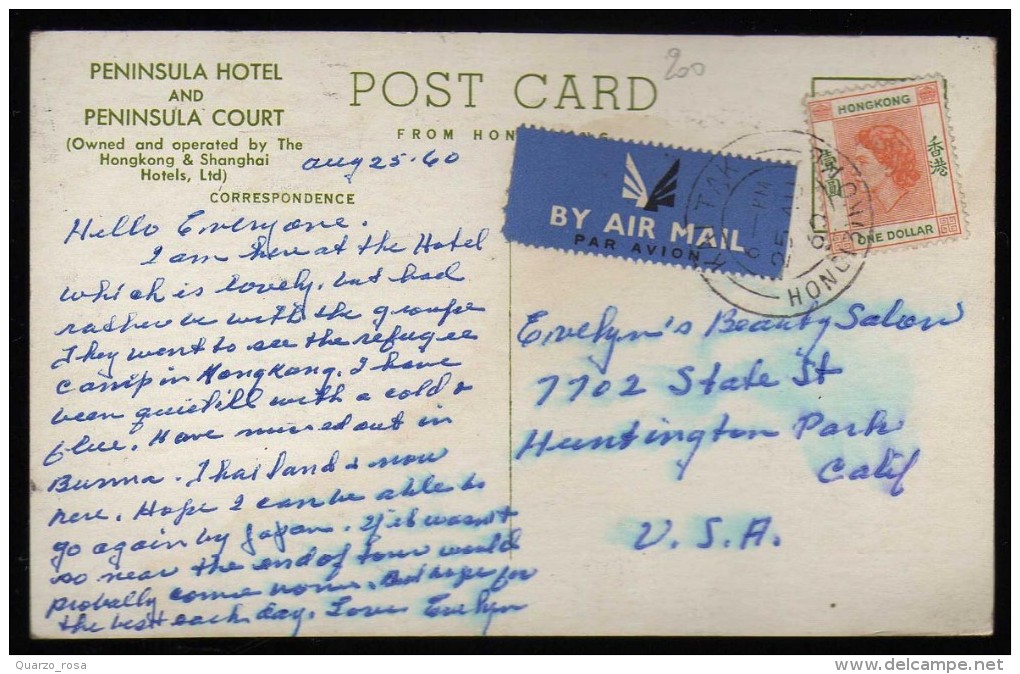 PENINSULA HOTEL
AND
PENINSULA COURT
(Owned and operated by The
Hongkong & Shanghai
Hotels, Ltd)
POST CARD
FROM HON
200
CORRESPONDENCE
Aug 25-60
Hello Everyone.
I am here at the Hotel
which is lovely, but had
rather be with the groupe
They went to see the refugee
camp in Hongkong. I have
been quiet ill with a cold &
flue. Have missed out in
Burma. Thailand & now
here. Hope I can be able to
go again by Japan. If it wasn't
so near the end of tour would
probally come home. But hope for
the best each day. Love Evelyn
BY AIR MAIL
PAR AVION
HONGKONG
壹圓
香港
ONE DOLLAR
KAI TAK
6 - PM
25 AU
60
HONG KONG
Evelyn's Beauty Salon
7702 State St
Huntington Park
Calif
U.S.A.
Quarzo_rosa
delcampe.net